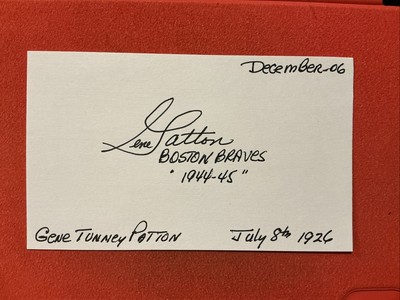 December-06
Gene Patton
BOSTON BRAVES
"1944-45"
Gene Tunney Patton July 8th 1926